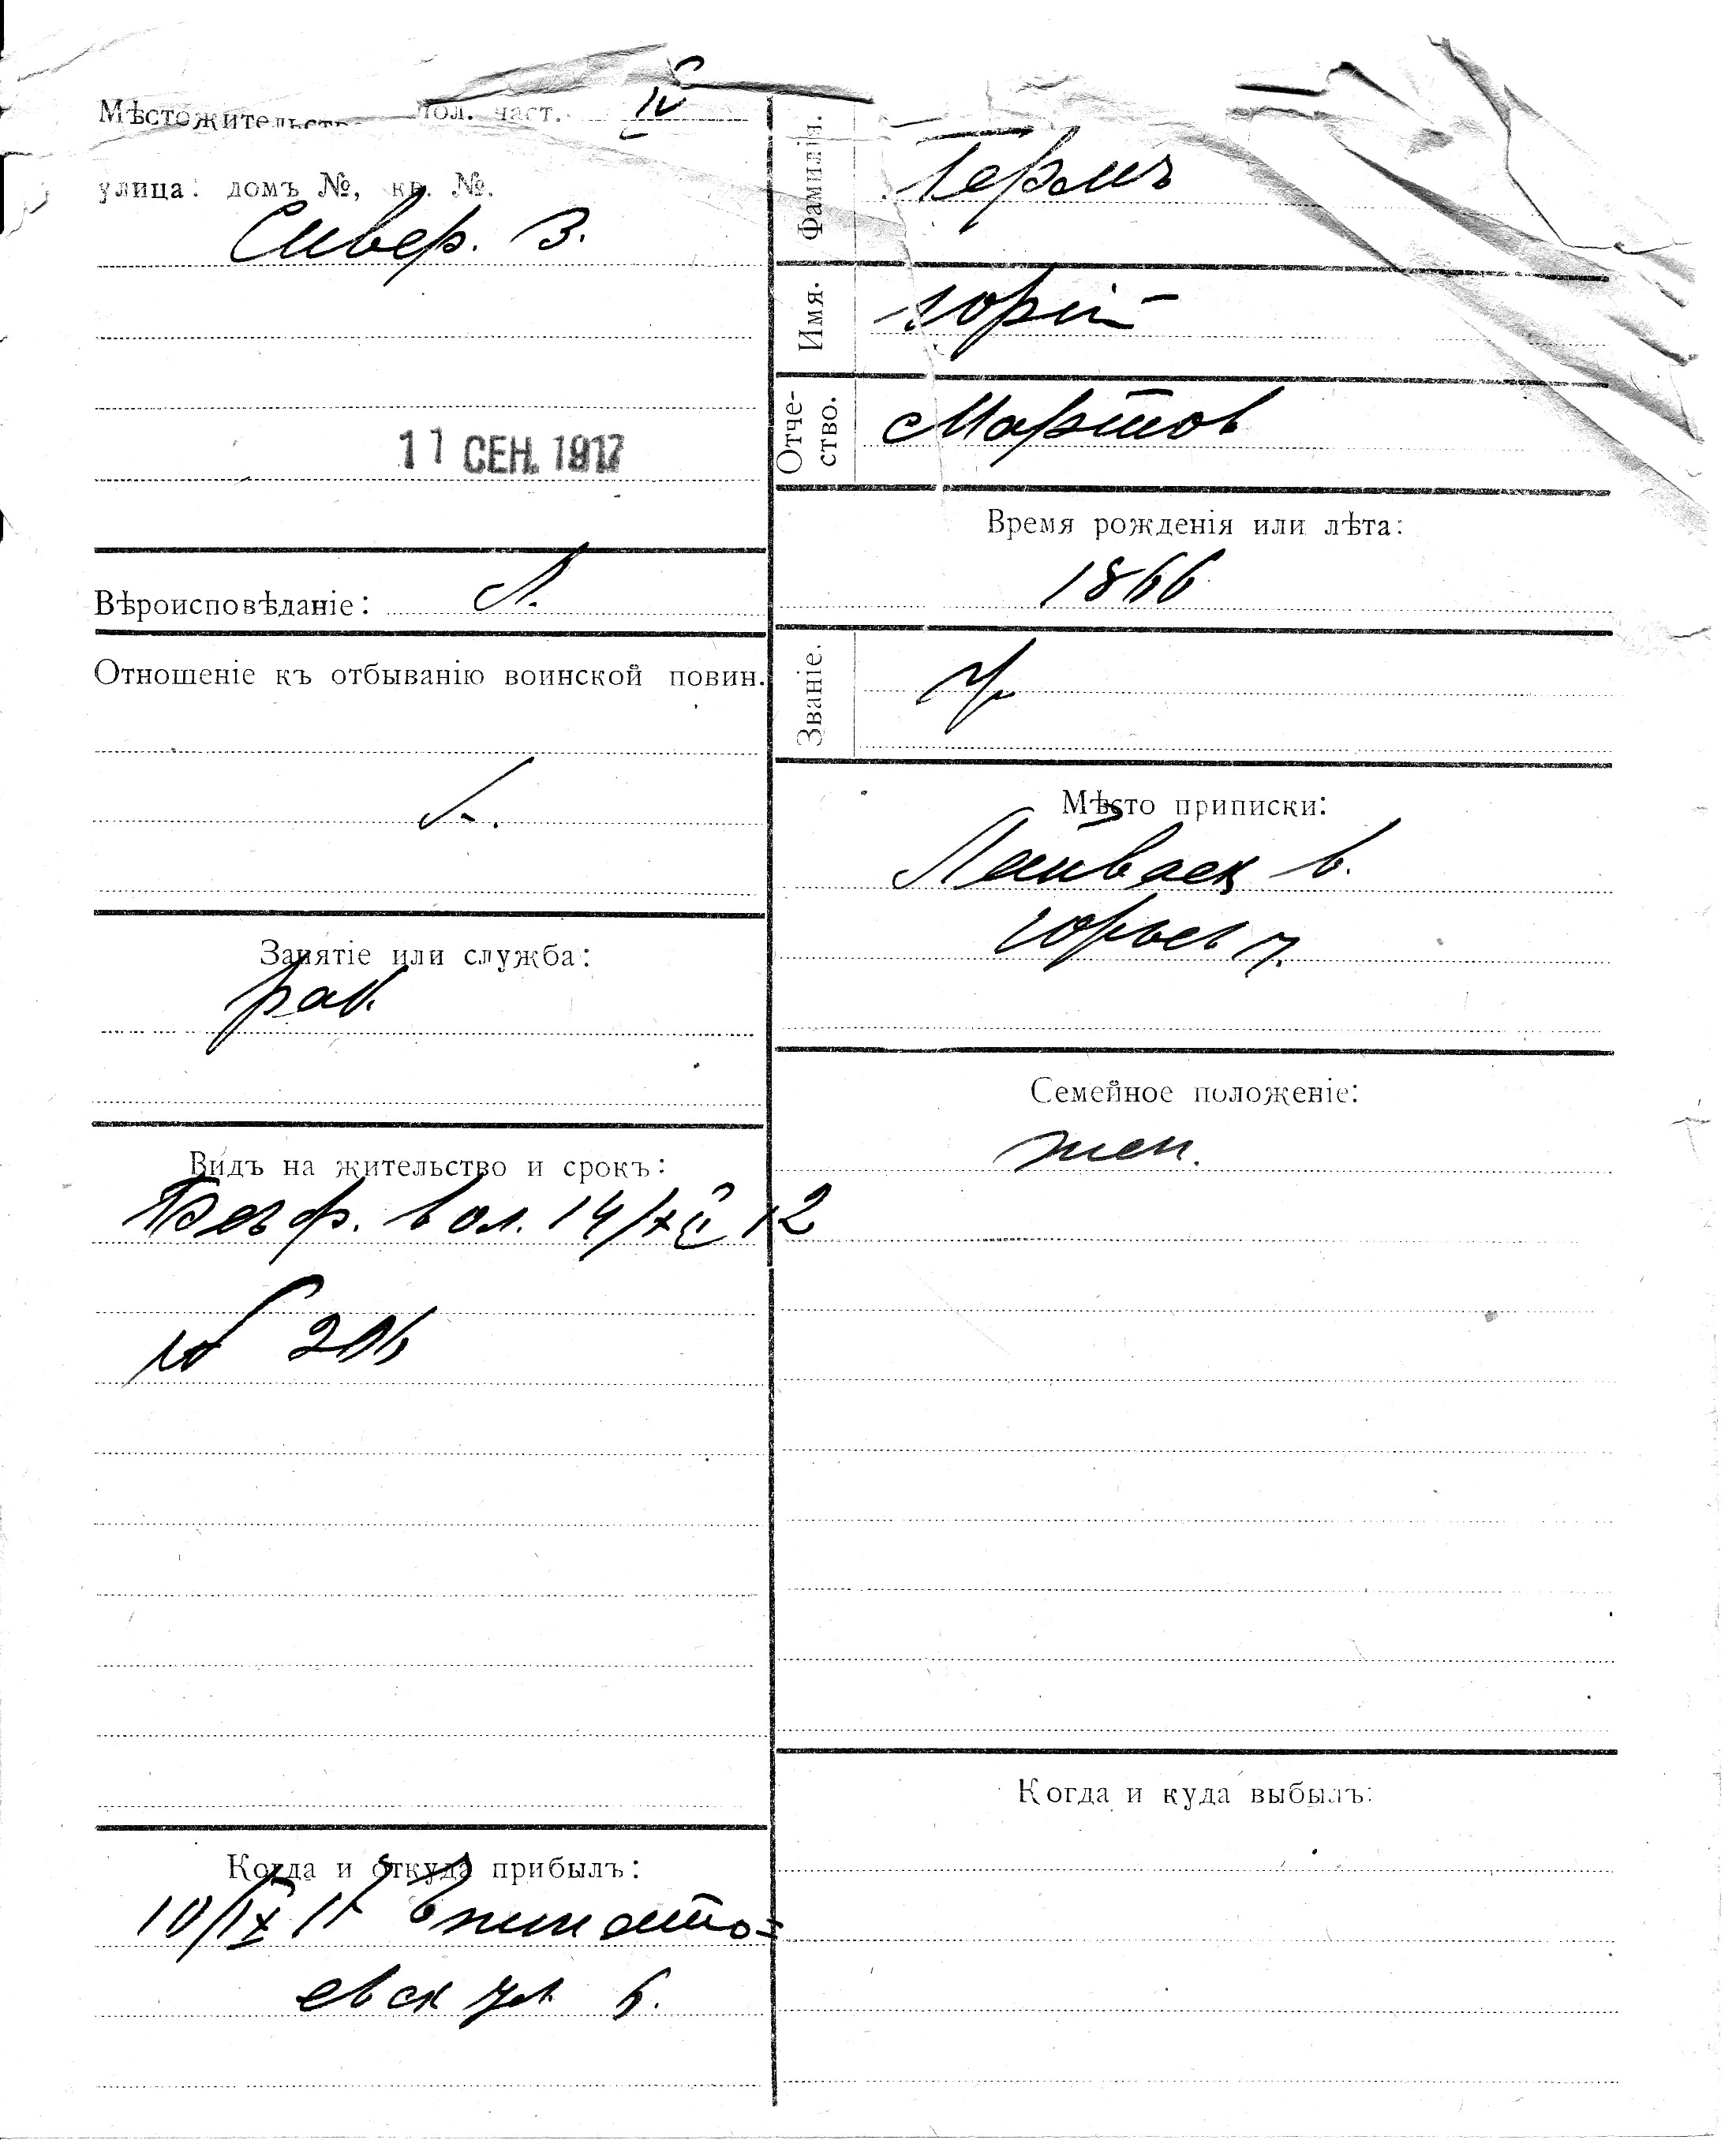 Мѣстожительств пол. част. IV
улица: домъ №, кв. №.
Сивер. 3.
11 СЕН. 1917
Вѣроисповѣданіе: Л.
Отношеніе къ отбыванію воинской повин.
Занятіе или служба:
раб.
Видъ на жительство и срокъ:
вол. 14/XII 12
№
Когда и откуда прибылъ:
10/IX 17
евск ул 6.
Фамилія. Термъ
Имя. Юрій
Отче-
ство. Мартов
Время рожденія или лѣта:
1866
Званіе. кр
Мѣсто приписки:
в.
Юрьев у.
Семейное положеніе:
жен.
Когда и куда выбылъ: